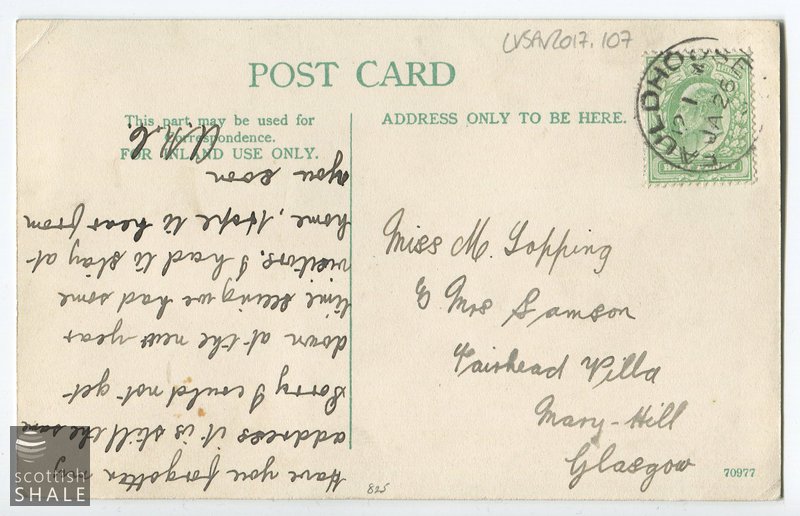 LVSAV2017.107
POST CARD
This part may be used for
Correspondence.
FOR INLAND USE ONLY.
ADDRESS ONLY TO BE HERE.
AULDHOUSE
JA 26
Have you forgotten my
address it is still the same
Sorry I could not get
down at the new year
time seeing we had some
visitors. I had to stay at
home, Hope to hear from
you soon
Miss M. Topping
Mrs Samson
Fairhead Villa
Mary-Hill
Glasgow
70977
825
scottish
SHALE